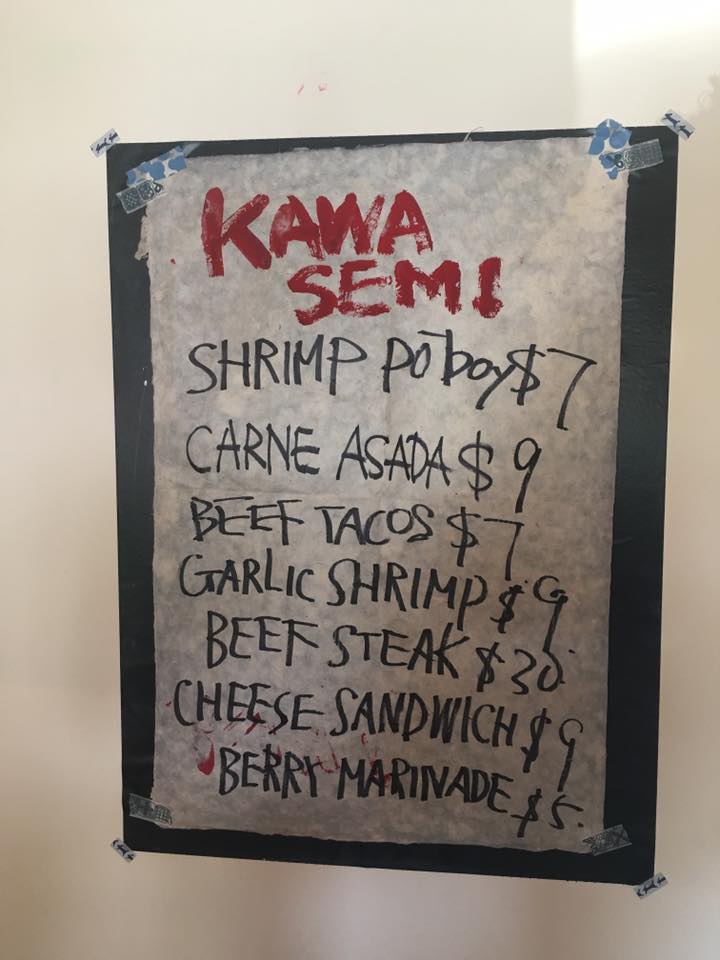 KAWA
SEMI
SHRIMP PO boy $7
CARNE ASADA $9
BEEF TACOS $7
GARLIC SHRIMP $9
BEEF STEAK $30
CHEESE SANDWICH $9
BERRY MARINADE $5